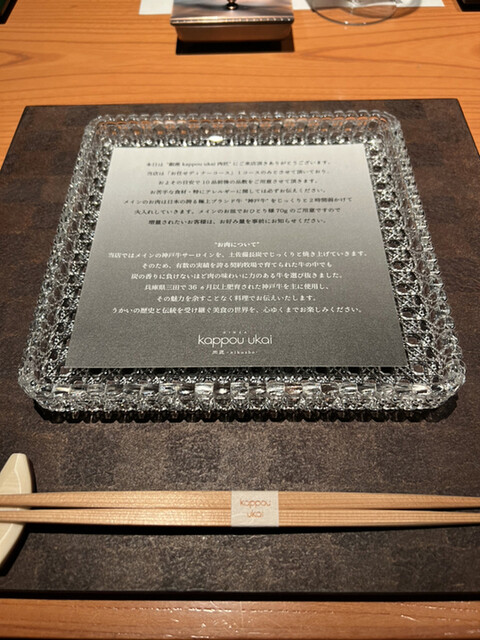 本日は"銀座 kappou ukai 肉匠"にご来店頂きありがとうございます。
当店は「お任せディナーコース」1コースのみとさせて頂いており、
およその目安で10品前後のお料理をご用意させて頂きます。
お苦手な食材・特にアレルギーに関しては必ずお伝えください。
メインのお肉は日本の誇る極上ブランド牛"神戸牛"をじっくりと2時間弱かけて
火入れしていきます。メインのお皿でおひとり様70gのご用意ですので
増量されたいお客様は、お好み量を事前にお知らせください。
"お肉について"
当店ではメインの神戸牛サーロインを、土佐備長炭でじっくりと焼き上げていきます。
そのため、有数の実績を誇る契約牧場で育てられた牛の中でも
炭の香りに負けないほど肉の味わいに力のある牛を選び抜きました。
兵庫県三田で36ヵ月以上肥育された神戸牛を主に使用し、
その魅力を余すことなく料理でお伝えいたします。
うかいの歴史と伝統を受け継ぐ美食の世界を、心ゆくまでお楽しみください。
GINZA
kappou ukai
肉匠・nikusho
kappou
ukai